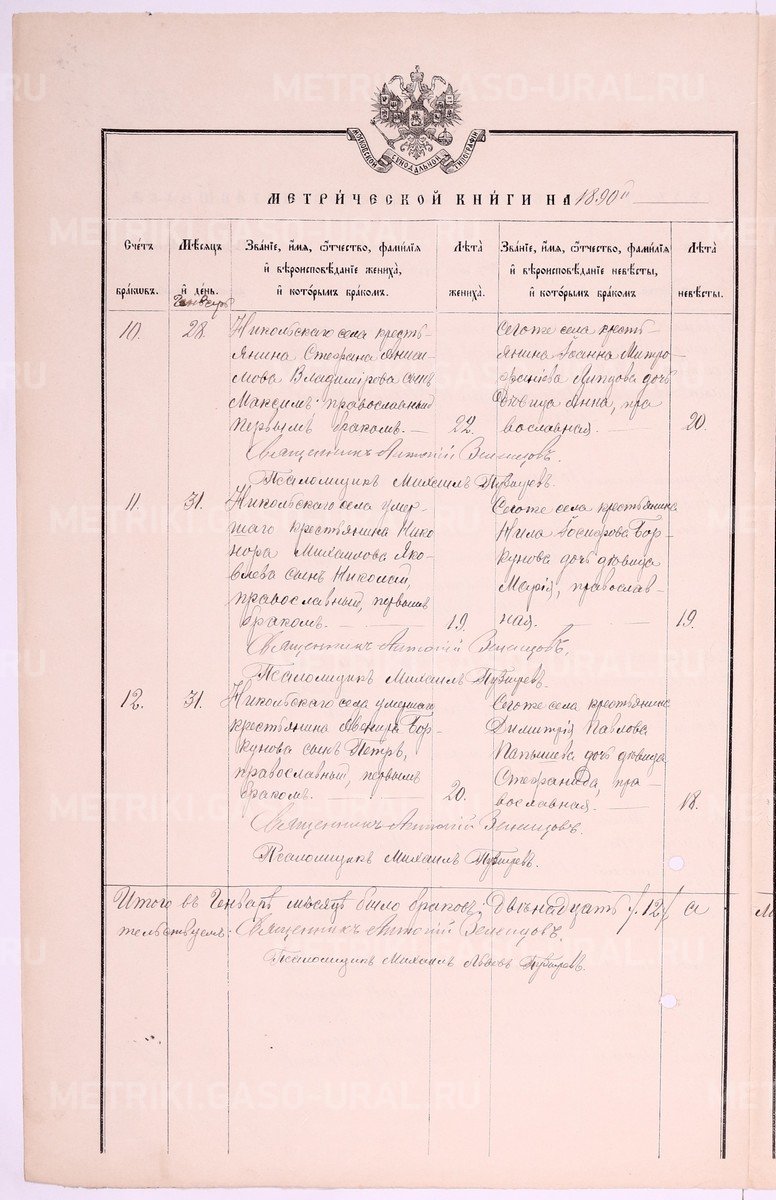 METRIKI.GASO-URAL.RU
МОСКОВСКОЙ СѴНОДАЛЬНОЙ ТИПОГРАФІИ
МЕТРИ́ЧЕСКОЙ КНИ́ГИ НА 1890 й
Сче́тъ бра́кѡвъ.
Мѣ́сѧцъ и҆ де́нь.
Зва́нїе, и҆́мѧ, ѻ҆́тчество, фами́лїѧ
и҆ вѣроисповѣ́данїе жениха̀,
и҆ кото́рымъ бра́комъ.
Лѣ́та жениха̀.
Зва́нїе, и҆́мѧ, ѻ҆́тчество, фами́лїѧ
и҆ вѣроисповѣ́данїе невѣ́сты,
и҆ кото́рымъ бра́комъ
Лѣ́та невѣ́сты.
Генварь
10. 28.
Никольскаго села кресть-
янина Стефана Аниси-
мова Владимірова сынъ
Максимъ православный
первымъ бракомъ.
22.
Сегоже села кресть-
янина Іоанна Митро-
фаніева дочь
дѣвица Анна, пра
вославная.
20.
Священникъ Антоній
Псаломщикъ Михаилъ
11. 31.
Никольскаго села умер-
шаго крестьянина Нико
нора Михаилова Яко-
влева сынъ Николай,
православный, первымъ
бракомъ.
19.
Сегоже села крестьянина
Нила Іосифова Бор-
кунова дочь дѣвица
Марія, православ-
ная.
19.
Священникъ Антоній
Псаломщикъ Михаилъ
12. 31.
Никольскаго села умершаго
крестьянина Авенира Бор-
кунова сынъ Петръ,
православный, первымъ
бракомъ.
20.
Сегоже села крестьянина
Димитрія Павлова
Папышева дочь дѣвица
Стефанида, пра-
вославная.
18.
Священникъ Антоній
Псаломщикъ Михаилъ
Итого въ Генварѣ мѣсяцѣ было браковъ двѣнадцать /12/
Священникъ Антоній
Псаломщикъ Михаилъ